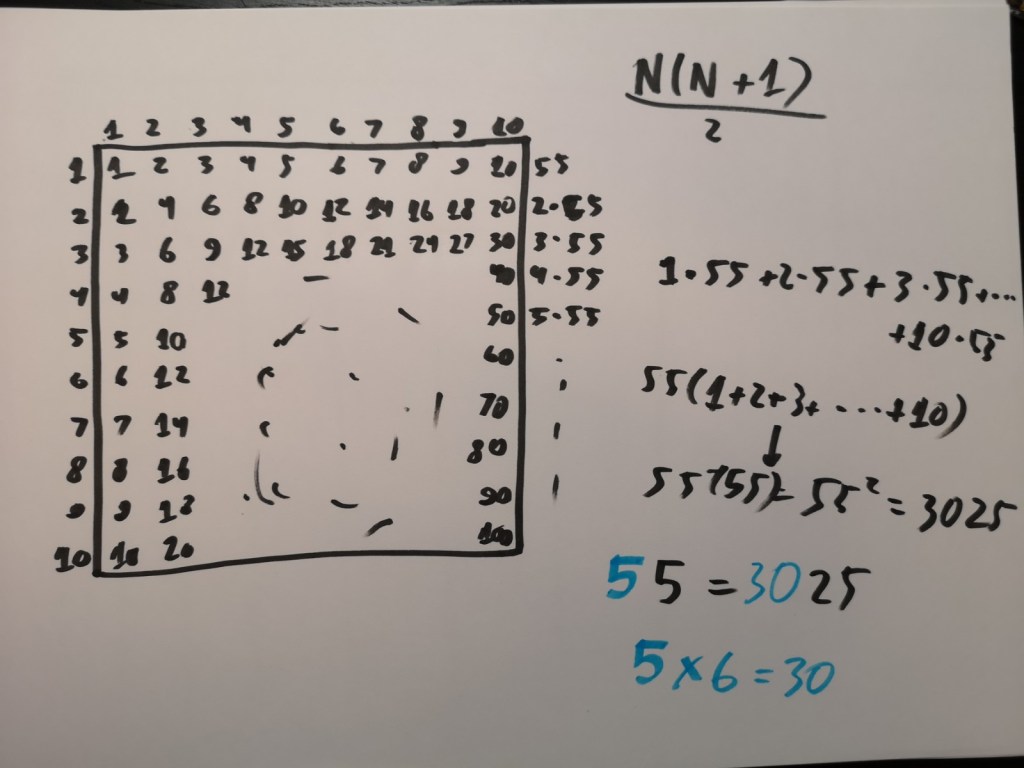 N(N+1)
2
1 2 3 4 5 6 7 8 9 10
1 1 2 3 4 5 6 7 8 9 10 55
2 2 4 6 8 10 12 14 16 18 20 2·55
3 3 6 9 12 15 18 21 24 27 30 3·55
4 4 8 12 40 4·55
5 5 10 50 5·55
6 6 12 60
7 7 14 70
8 8 16 80
9 9 18 90
10 10 20 100
1·55+2·55+3·55+...
+10·55
55(1+2+3+...+10)
55(55)=55²=3025
55=3025
5×6=30